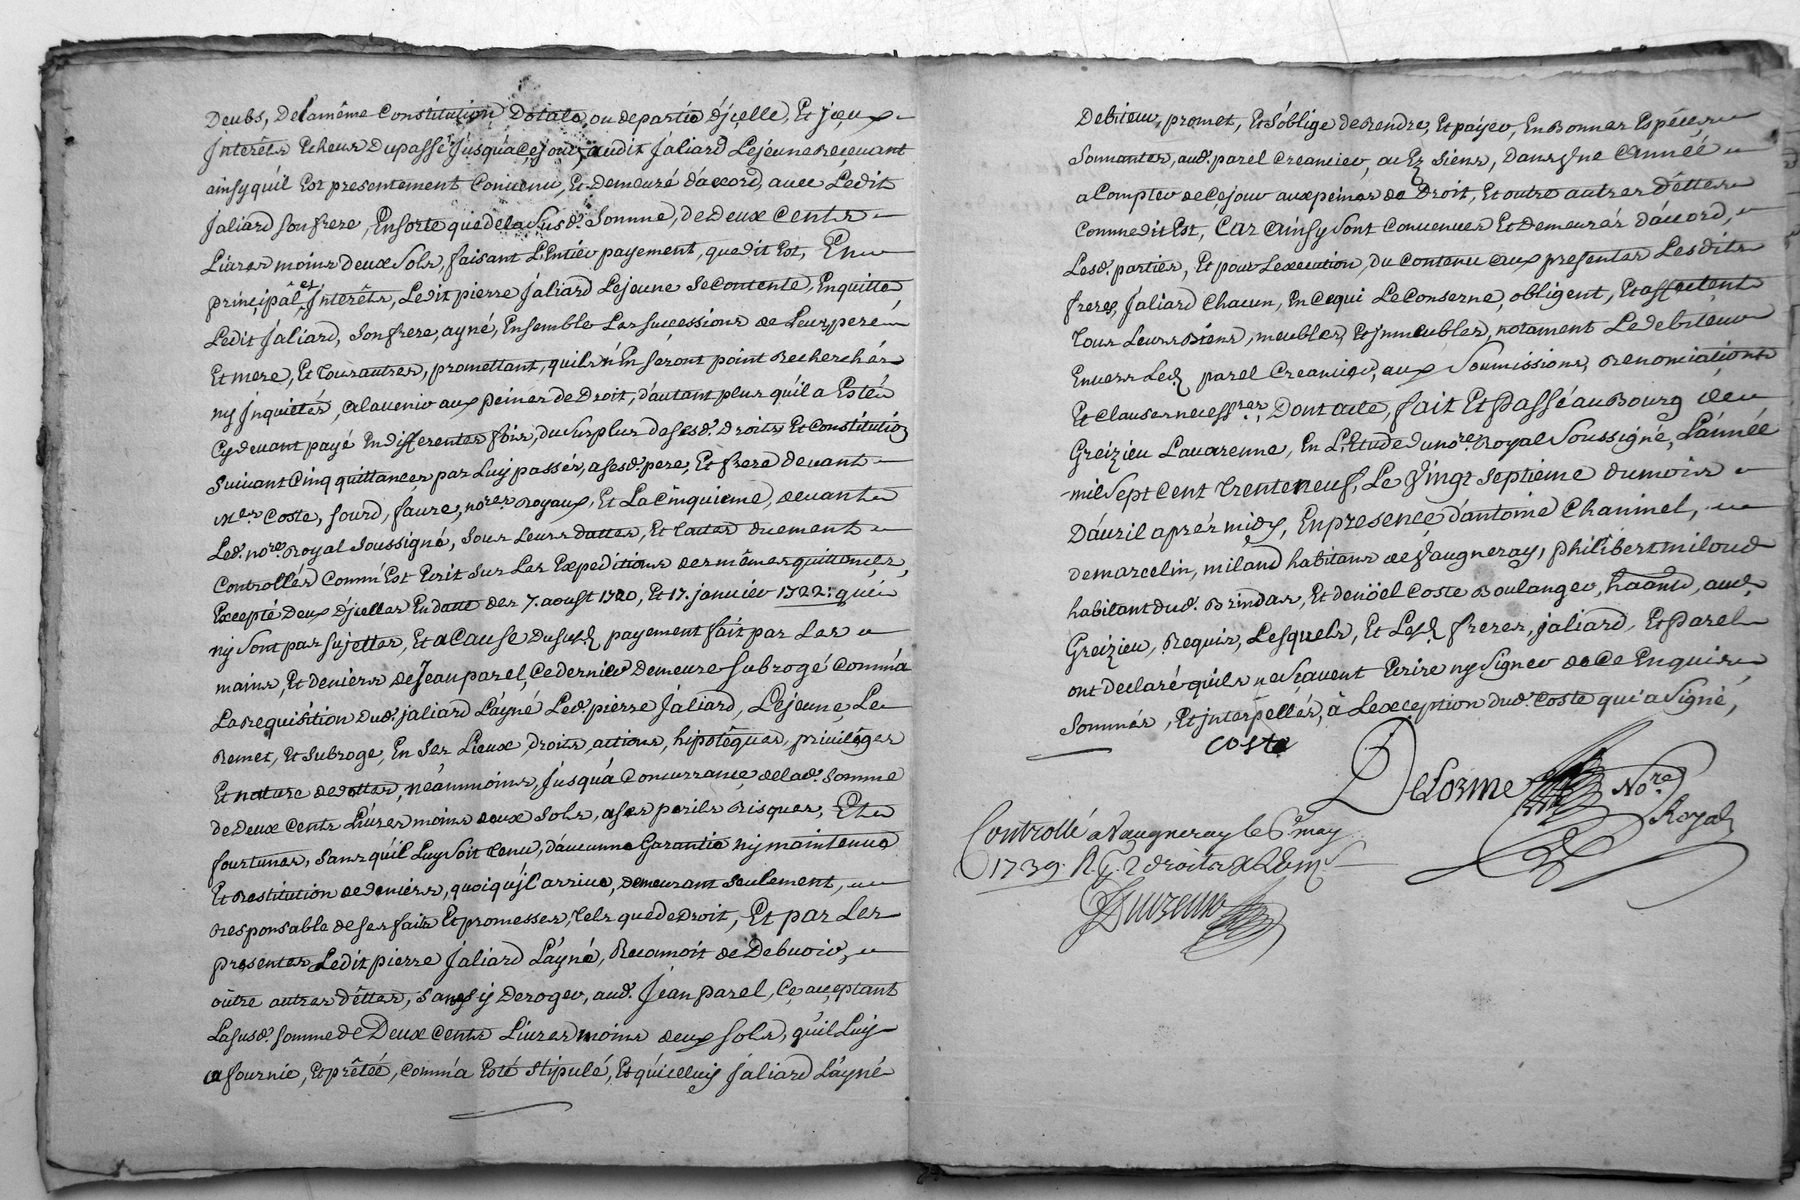 Deubs, De la même Constitution Dotale, ou de partie d'jcelle, Et jceux
Jnterêts Echeus Du passé Jusqu'a ce jour, audit Jaliard Lejeune Recevant
ainsy qu'il Est presentement Convenu, Et Demeuré d'accord, avec Ledit
Jaliard son frere, En sorte que de la Susd. Somme, de Deux Cents
Livres moins deux Sols, faisant L'Entiér payement, que dit Est, En
principâl et Jnterêts, Ledit pierre Jaliard Lejeune Se contente, En quitte
Ledit Jaliard, Son frere, ayné, Ensemble Les successions de Leurs peré
Et mere, Et Tous autres, promettant, qu'ils n'En séront point Recherchés
ny Jnquietés, a L'avenir aux peines de Droit, d'autant plus qu'il a Esté
Cy devant payé En differentes fois, du Surplus de sesd. Droits Et Constitution
Suivant Cinq quittances par Luy passés, a sesd. pere, Et frere devant
Mes. Coste, sourd, faure, nores. Royaux, Et La Cinquieme, devant
Led. nore. Royal Soussigné, Sous Leurs dattes, Et Toutes duement
Controllés Comm'Est Ecrit Sur Les Expeditions des mêmes quittances,
Excepté Deux d'jcelles En datte des 7. aoust 1720, Et 17. janviér 1722: qui
ny Sont pas Sujettes, Et a Cause Du susd. payement fait par Les
mains, Et deniers de Jean parel, Ce dernier Demeure Subrogé Comm'a
La requisition dud. jaliard L'ayné Led. pierre Jaliard, Lejeune Le
Remet, Et Subroge, En Ses Lieux, droits, actions, hipotêques, privilêges
Et nature de dettes, néammoins, Jusqu'a Concurrance de lad. Somme
de Deux Cents Livres moins deux Sols, a ses perils Risques, Et
fourtunes, Sans qu'il Luy Soit tenu, d'aucunne Garantie ny maintenue
Et Restitution de deniérs, quoiqu'jl arrive, demeurant Seulement,
Responsable de ses faits Et promesses, tels que de Droit, Et par Les
presentes Ledit pierre Jaliard L'ayné, Reconnoit de Debvoir,
oûtre autres dêttes, Sans y Deroger, aud. Jean parel, Ce acceptant
La susd. somme de Deux Cents Livres moins deux Sols, qu'il Luy
a fournie, Et prêtée, Comm'a Esté Stipulé, Et qu'icelluy Jaliard L'ayné
Debiteur, promet, Et S'oblige de Rendre, Et payer, En Bonnes Espéces
Sonnantes, aud. parel Creancier, ou Ez Siens, Dans Une Année
a Compter de Ce jour aux peines de Droit, Et outre autres dêttes
Comme dit Est, Car Ainsy Sont Convenues Et Demeurés d'accord,
Lesd. parties, Et pour L'execution, du Contenu aux presentes Lesdits
freres, Jaliard Chacun, En Ce qui Le Conserne, obligent, Et affectent
Tous Leurs Biens, meubles, Et jmmeubles, notament Le debiteur
Envers Led. parel Creancier, aux Soumissions, Renonciations
Et Clauses necessres, Dont acte, fait Et Passé au Bourg de
Greizieu Lavarenne, En L'Etude du nore. Royal Soussigné, L'année
mil Sept Cent Trente neuf, Le Vingt Septieme du mois
D'avril aprés midy, En presence d'antoine Chaninel,
de marcelin, miland habitans de Vaugneray, philibert miloud
habitant dud. Brindas, Et de nöel Coste Boulanger, haant, aud.
Greizieu, Requis, Lesquels, Et Lesd. freres, jaliard, Et Parel
ont declaré qu'ils ne Sçavent Ecrire ny Signer de Ce Enquis
Sommés, Et jnterpellés, à L'exception dud. Coste qui a Signé,
Coste
Delorme Nore.
Royal
Controllé a Vaugneray le 6e. may
1739. R. 2 droits